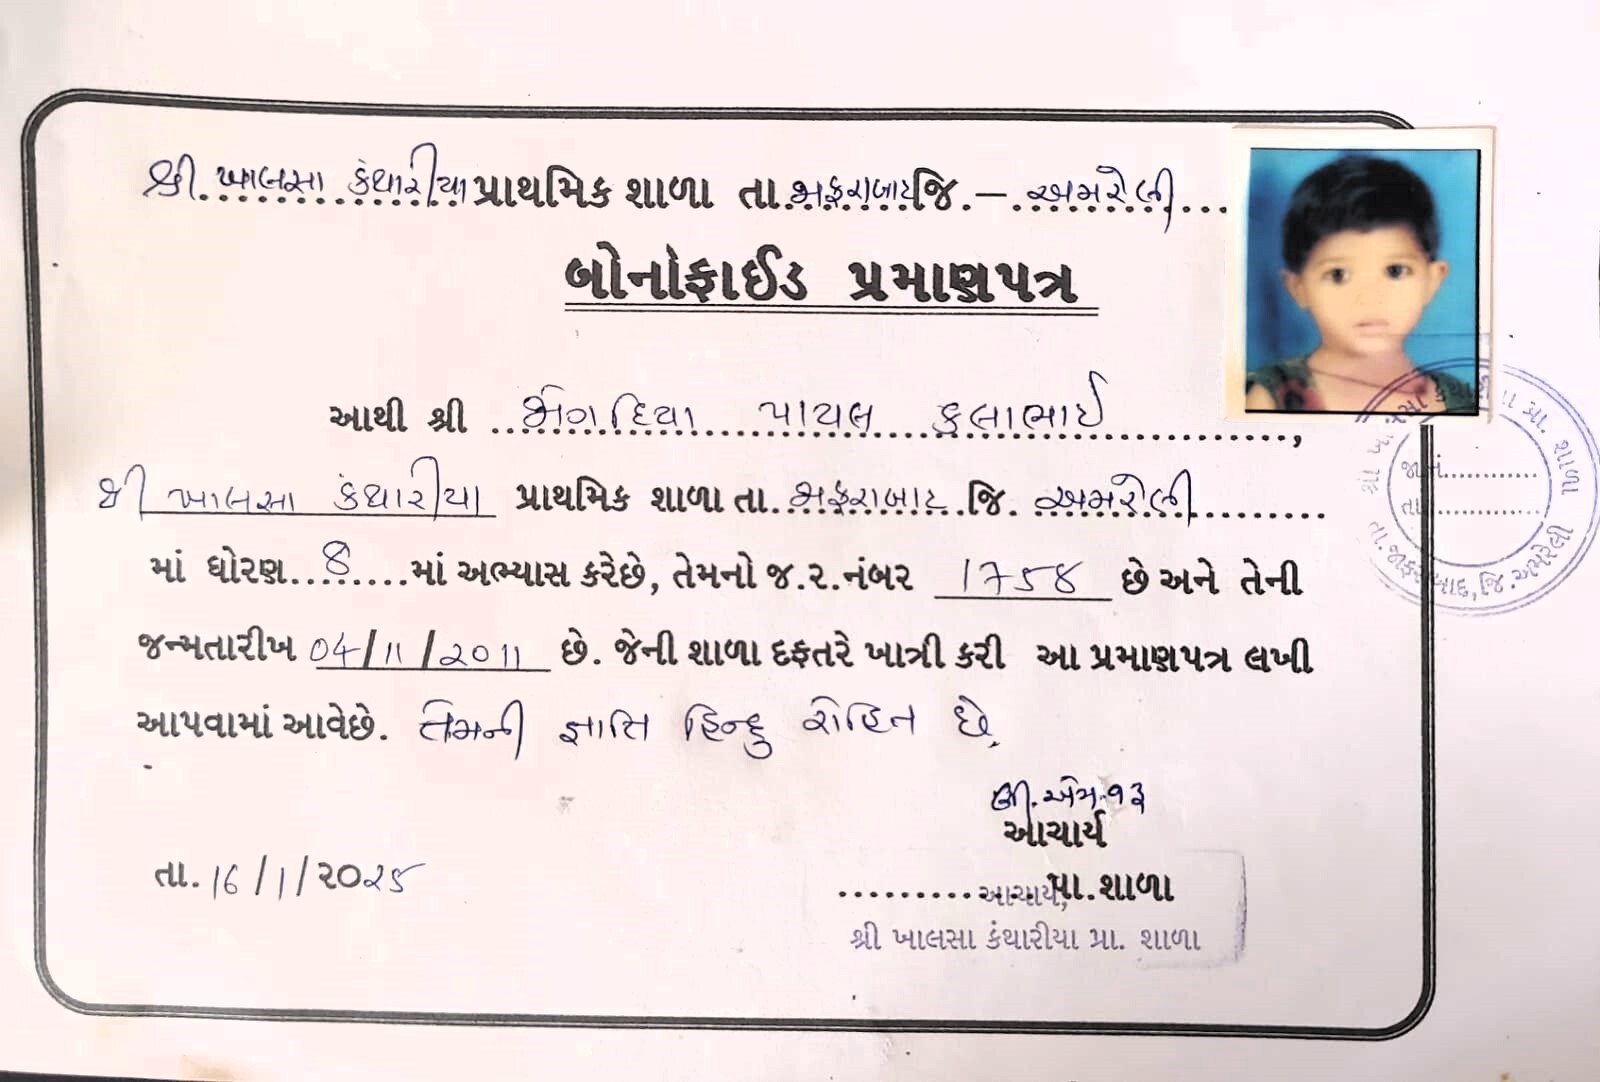 શ્રી. ખાલસા કંથારીયા પ્રાથમિક શાળા તા. જાફરાબાદ જિ. – અમરેલી
બોનોફાઈડ પ્રમાણપત્ર
આથી શ્રી પાયલ કુલાભાઈ,
શ્રી ખાલસા કંથારીયા પ્રાથમિક શાળા તા. જાફરાબાદ જિ. અમરેલી
માં ધોરણ 8 માં અભ્યાસ કરેછે, તેમનો જ.ર.નંબર 1758 છે અને તેની
જન્મતારીખ 04/11/2011 છે. જેની શાળા દફતરે ખાત્રી કરી આ પ્રમાણપત્ર લખી
આપવામાં આવેછે. તેમની જ્ઞાતિ હિન્દુ રોહિત છે.
આચાર્ય
તા. 16/1/૨૦૨૫
પ્રા.શાળા
આચાર્ય,
શ્રી ખાલસા કંથારીયા પ્રા. શાળા
શ્રી ખાલસા કંથારીયા પ્રા. શાળા
જા.નં.
તા.
તા.જાફરાબાદ, જિ.અમરેલી